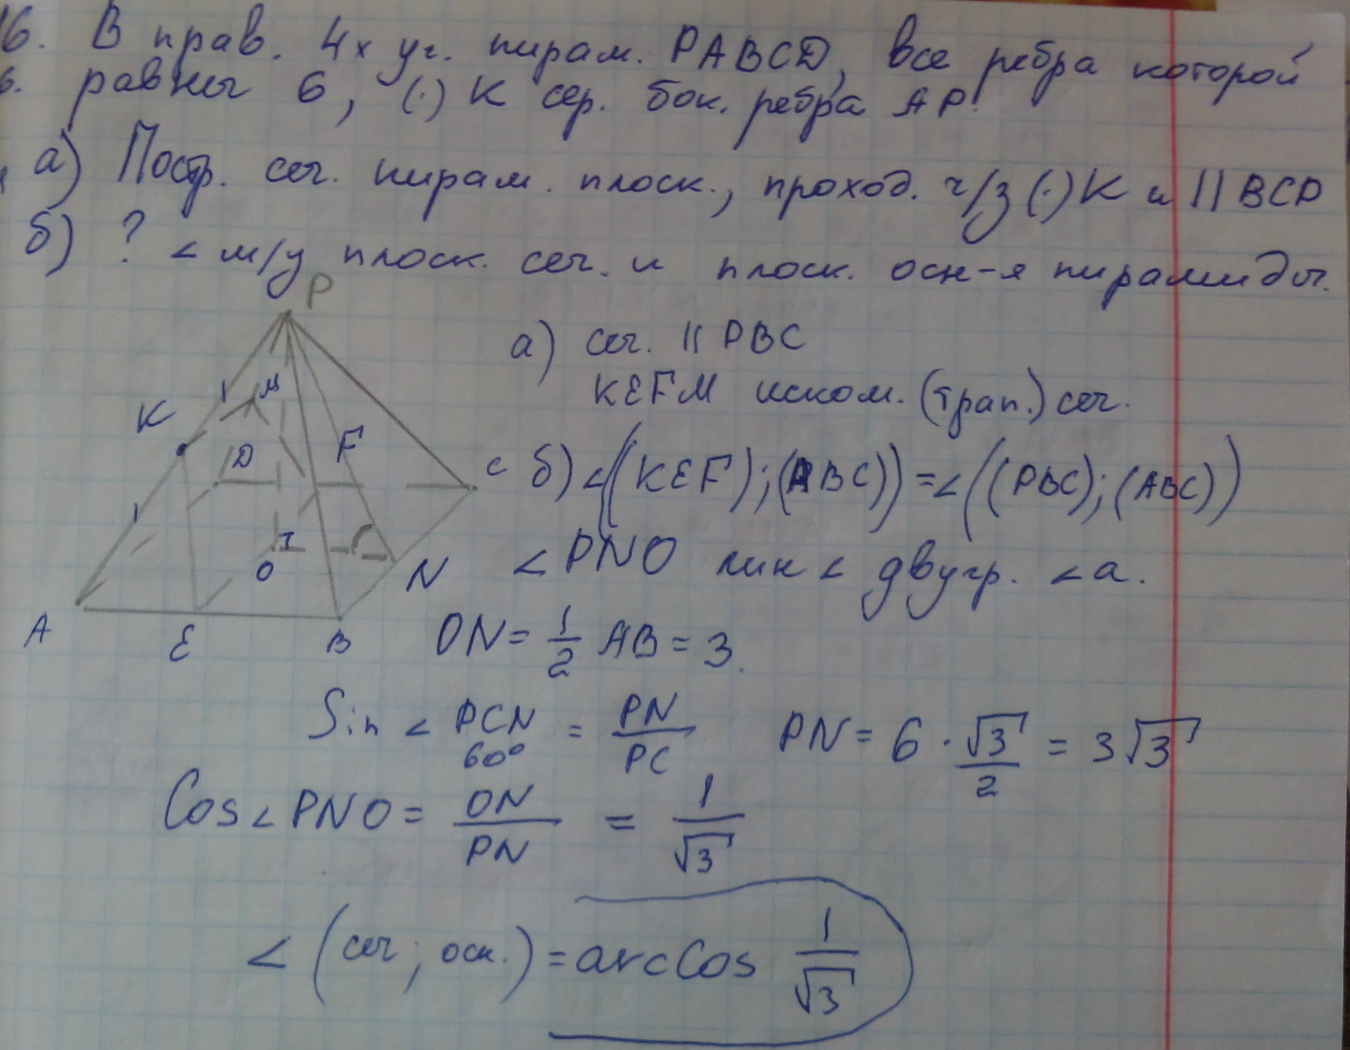 16. В прав. 4х уг. пирам. PABCD, все ребра которой
равны 6, (·) К сер. бок. ребра АР.
а) Постр. сеч. пирам. плоск., проход. ч/з (·) К и || BCP
б) ? ∠ м/у плоск. сеч. и плоск. осн-я пирамиды.
P
K
M
D
F
C
O
N
A
E
B
а) сеч. || PBC
KEFM иском. (трап.) сеч.
б) ∠((KEF);(ABC)) = ∠((PBC);(ABC))
∠PNO лин ∠ двугр. ∠а.
ON = 1/2 AB = 3.
Sin ∠ PCN = PN/PC   PN = 6 · √3/2 = 3√3
60°
Cos ∠ PNO = ON/PN = 1/√3
∠(сеч; осн.) = arccos 1/√3